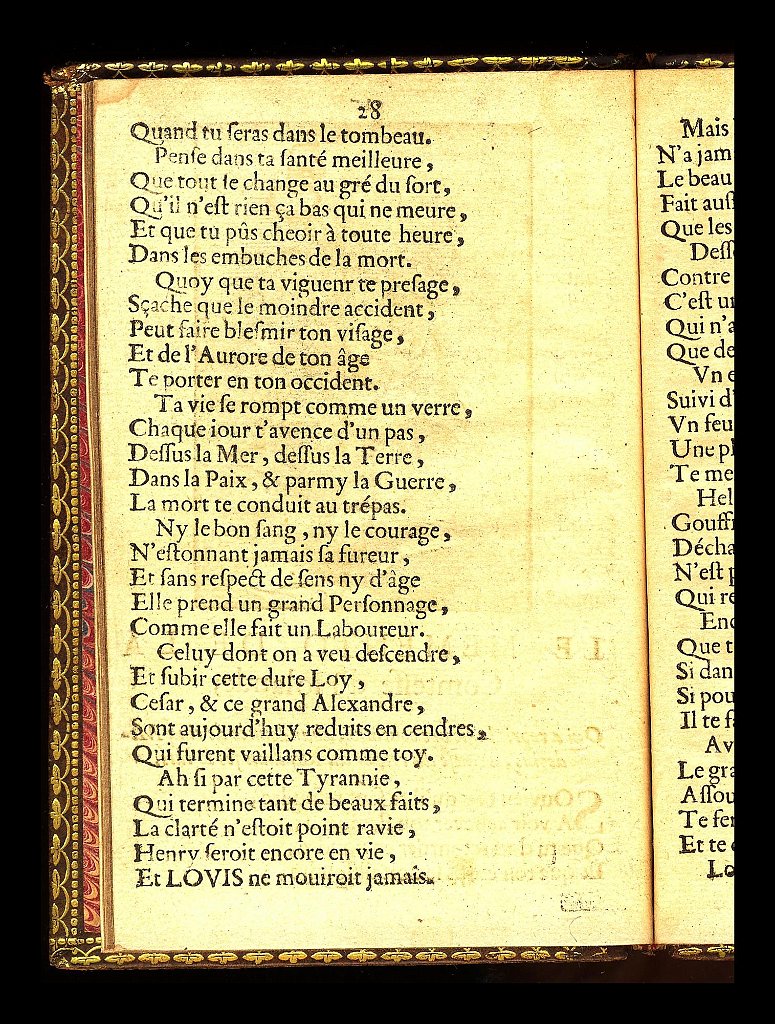 28
Quand tu ſeras dans le tombeau.
Penſe dans ta ſanté meilleure,
Que tout ſe change au gré du ſort,
Qu'il n'eſt rien ça bas qui ne meure,
Et que tu pûs cheoir à toute heure,
Dans les embuches de la mort.
Quoy que ta viguenr te preſage,
Sçache que le moindre accident,
Peut faire bleſmir ton viſage,
Et de l'Aurore de ton âge
Te porter en ton occident.
Ta vie ſe rompt comme un verre,
Chaque iour t'avence d'un pas,
Deſſus la Mer, deſſus la Terre,
Dans la Paix, & parmy la Guerre,
La mort te conduit au trépas.
Ny le bon ſang, ny le courage,
N'eſtonnant jamais ſa fureur,
Et ſans reſpect de ſens ny d'âge
Elle prend un grand Perſonnage,
Comme elle fait un Laboureur.
Celuy dont on a veu deſcendre,
Et ſubir cette dure Loy,
Ceſar, & ce grand Alexandre,
Sont aujourd'huy reduits en cendres,
Qui furent vaillans comme toy.
Ah ſi par cette Tyrannie,
Qui termine tant de beaux faits,
La clarté n'eſtoit point ravie,
Henry ſeroit encore en vie,
Et LOVIS ne mouiroit jamais.
Mais
N'a jam
Le beau
Fait auſſ
Que les
Deſſ
Contre
C'eſt u
Qui n'a
Que de
Vn e
Suivi d'
Vn feu
Une pl
Te me
Hel
Gouffr
Décha
N'eſt p
Qui re
Enc
Que t
Si dan
Si pou
Il te f
Av
Le gra
Aſſou
Te fer
Et te
Lo